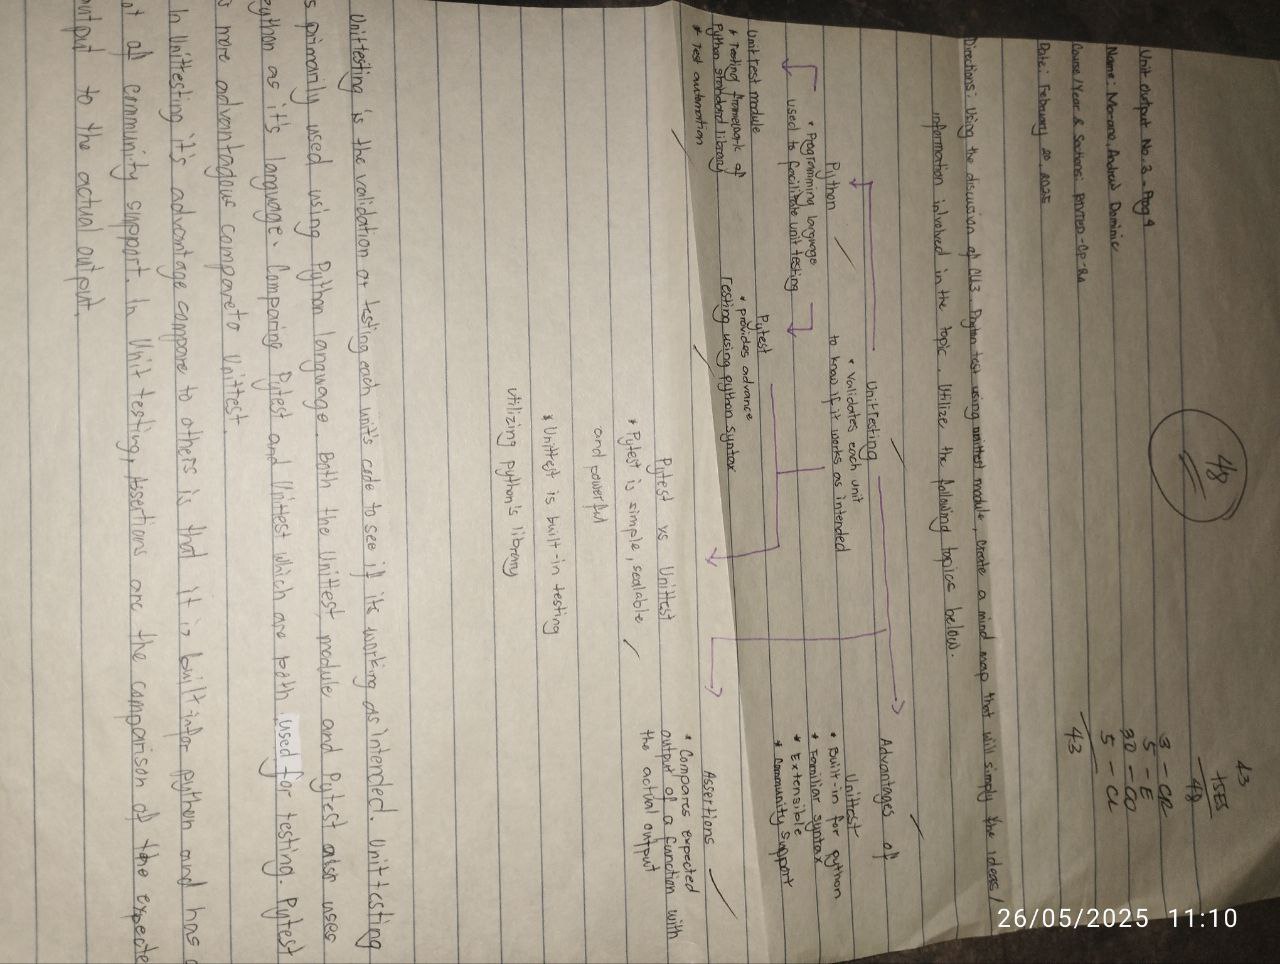 48
43
+5ES
48
3 - CR
5 - E
30 - CO
5 - CL
43
26/05/2025 11:10
Unit Output No. 3 - Prog 4
Name: Morano, Andrew Dominic
Course/Year & Sections: BTVTED-CP-
Date: February 20, 2025
Directions: Using the discussion of CU3. Phyton test using unittest module, create a mind map that will simply the ideas/
information inlvolved in the topic. Utilize the following topics below.
Unittesting
* Validates each unit
to know if it works as intended
Python
* Programming language
used to facilitate unit testing
Unit test module
* Testing framework of
Python standard library
* Test automation
Pytest
* provides advance
Testing using python syntax
Pytest vs Unittest
* Pytest is simple, scalable
and powerful
* Unittest is built-in testing
utilizing python's library
Advantages of
Unittest
* Built-in for python
* Familiar syntax
* Extensible
* Community support
Assertions
* Compares expected
output of a function with
the actual output
Unittesting is the validation or testing each unit's code to see if its working as intended. Unit testing
s primarily used using Python language. Both the Unittest module and Pytest also uses
ython as it's language. Comparing Pytest and Unittest which are both used for testing. Pytest
s more advantagous compare to Unittest.
In Unittesting it's advantage compare to others is that it is built in for python and has a
ot of community support. In Unit testing, Assertions are the comparison of the expecte
utput to the actual output.